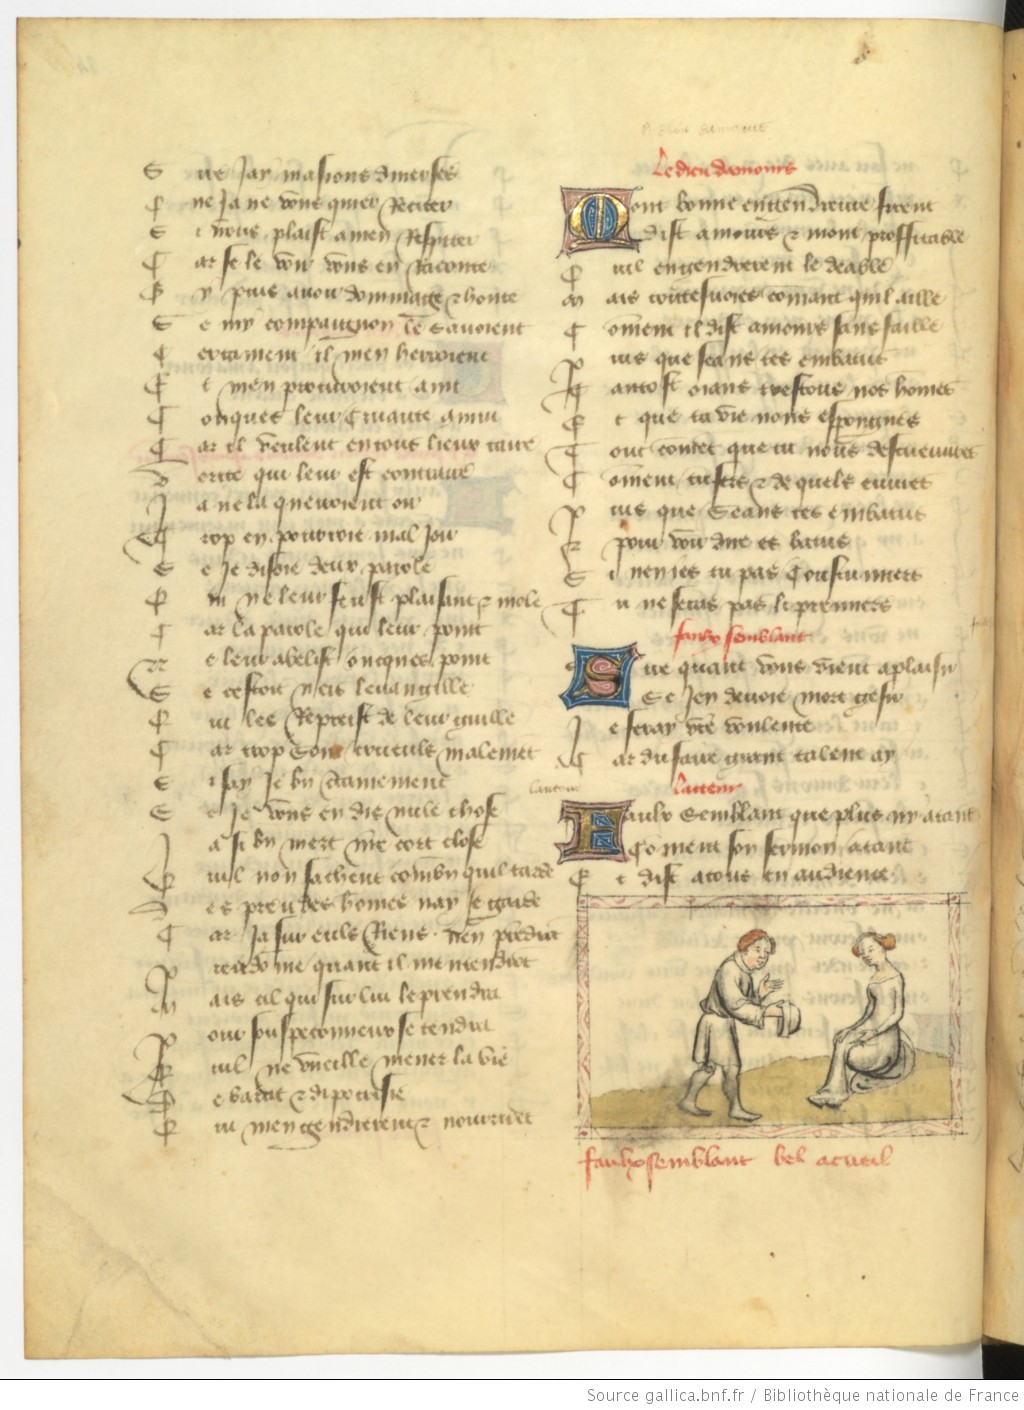 S ue Jay masions diverses
E ne Ja ne vous quier Reciter
S i vous plaist amen Respiter
C ar se le voir vous en Raconte
B y puis avoir dommage & honte
S e my compaignon le savoient
C ertainment il men herroient
E t men procuroient anui
C onques leur cruaute
C ar il veulent en tous lieux taire
V erite qui leur est contraire
J a ne la querroient oir
T rop en pourroie mal Joir
S e Je disoie deux parole
Q ui ne leur feust plaisant & mole
C ar la parole qui leur point
N e leur abelist oncques point
S e cestoit neis levangille
Q ui les Represist de leur guille
C ar trop sont crueuls malement
S i say Je bn certainement
S e Je vous en dis nule chose
J a si bn niert vre cort close
Q uil non sachent combn quil tarde
D es preudes homes nay Je garde
C ar Ja sur euls Riens nen prendront
P reudome quant il mentendront
M ais cil qui sur lui le prendra
P our souspeconneux se tendra
Q uil ne vueille mener la vie
D e barat & dipocrisie
Q ui mengendrerent & nourrirent
Le dieu damours
Moult bonne engendreure firent
Dist amours & mout proffitable
Q uil engendrerent le deable
M ais toutesvoies comant quil aille
C oment il dist amours sans faille
P uis que seans tes embatus
A antost oians trestous nos homes
E t que ta vie nous espongnes
T out contet que tu nous descueuvres
C oment tu sers & de quels euvres
P uis que seans tes embatus
E pour voir dire es batus
S i nen ies tu pas coustumiers
T u ne seras pas li premiers
faulx semblant
Sire quant vous vient a plaisir
Se Jen devoie mort gesir
J e feray vre voulente
C ar du faire grant talent ay
lacteur
Lacteur
Faulx semblant que plus ny atant
Coment son sermon atant
E t dist a tous en audience
faulx semblant bel acueil
Source gallica.bnf.fr / Bibliothèque nationale de France